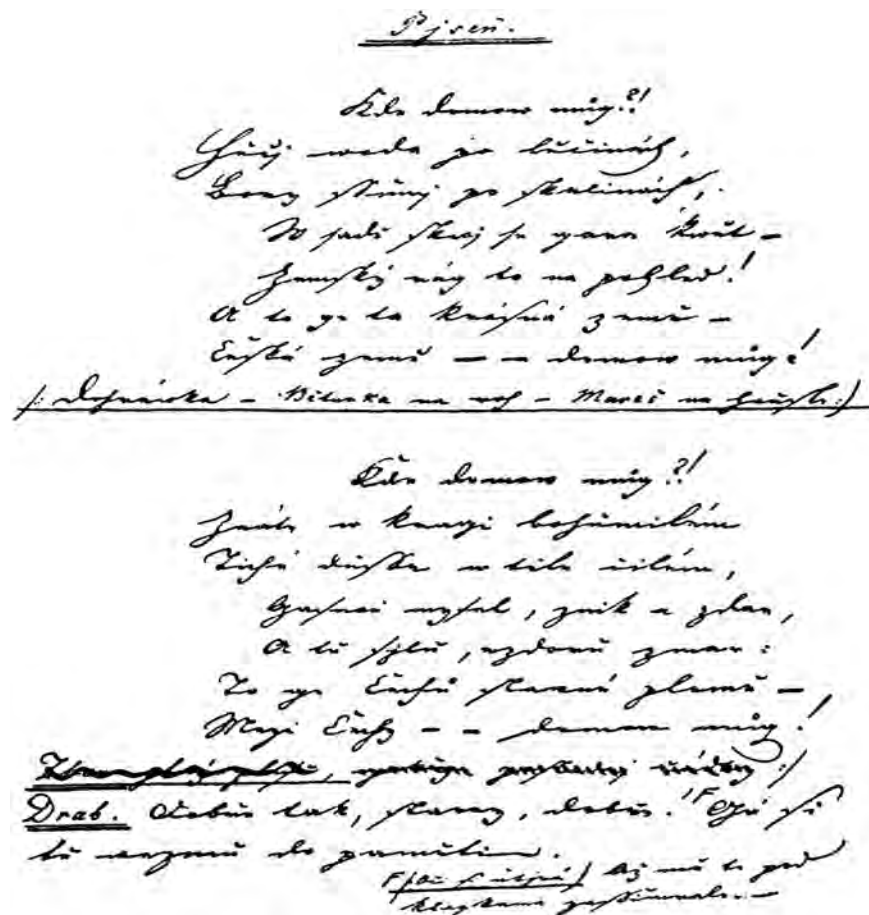 Pjseň.
Kde domow můg?!
Hučj woda po lučinách,
Bory ssumj po skalinách,
W sadě skwj se gara kwět –
Zemský rág to na pohled!
A to ge ta krásná země –
Česká země – – domow můg!
/: Dohrávka – na roh – Mareš na housle :/
Kde domow můg?!
Znáte w kragi bohumilém
Tiché dusse w těle čilém,
Gasnau mysl, znik a zdar,
A tu sylu, wzdoru zmar:
To ge Čechů slawné plemě –
Mezi Čechy – – domow můg!
Drab. Dobře tak, starý, dobře. F Gá si
tu wezmu do paměti.
F Až mě to pod